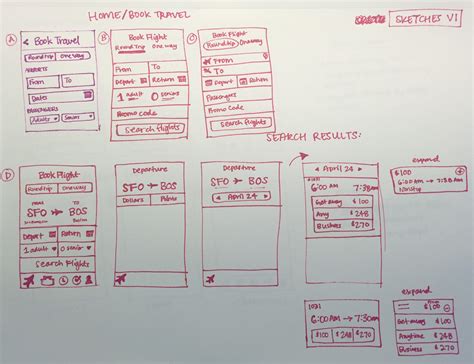 HOME/BOOK TRAVEL
SKETCHES V1
A
Book Travel
Roundtrip One way
AIRPORTS
From To
Dates
PASSENGERS
Adults Senior
B
Book Flight
Roundtrip One way
From To
Depart Return
1 Adult 0 Seniors
Promo code
Search flights
C
Book Flight
Roundtrip Oneway
From
To
Depart Return
Passengers
Promo Code
Search flights
SEARCH RESULTS:
D
Book Flight
Roundtrip Oneway
FROM TO
SFO BOS
Depart Return
1 adult 0 senior
Search Flights
Departure
SFO BOS
Dollars Points
Departure
SFO BOS
April 24
April 24
1021
6:00AM 7:30AM
Get away $100
Any $248
Business $270
expand
$100
6:00AM 7:30AM
Nonstop
1021
6:00AM 7:30AM
$100 $248 $270
expand
$100
Getaway $100
Anytime $248
Business $270